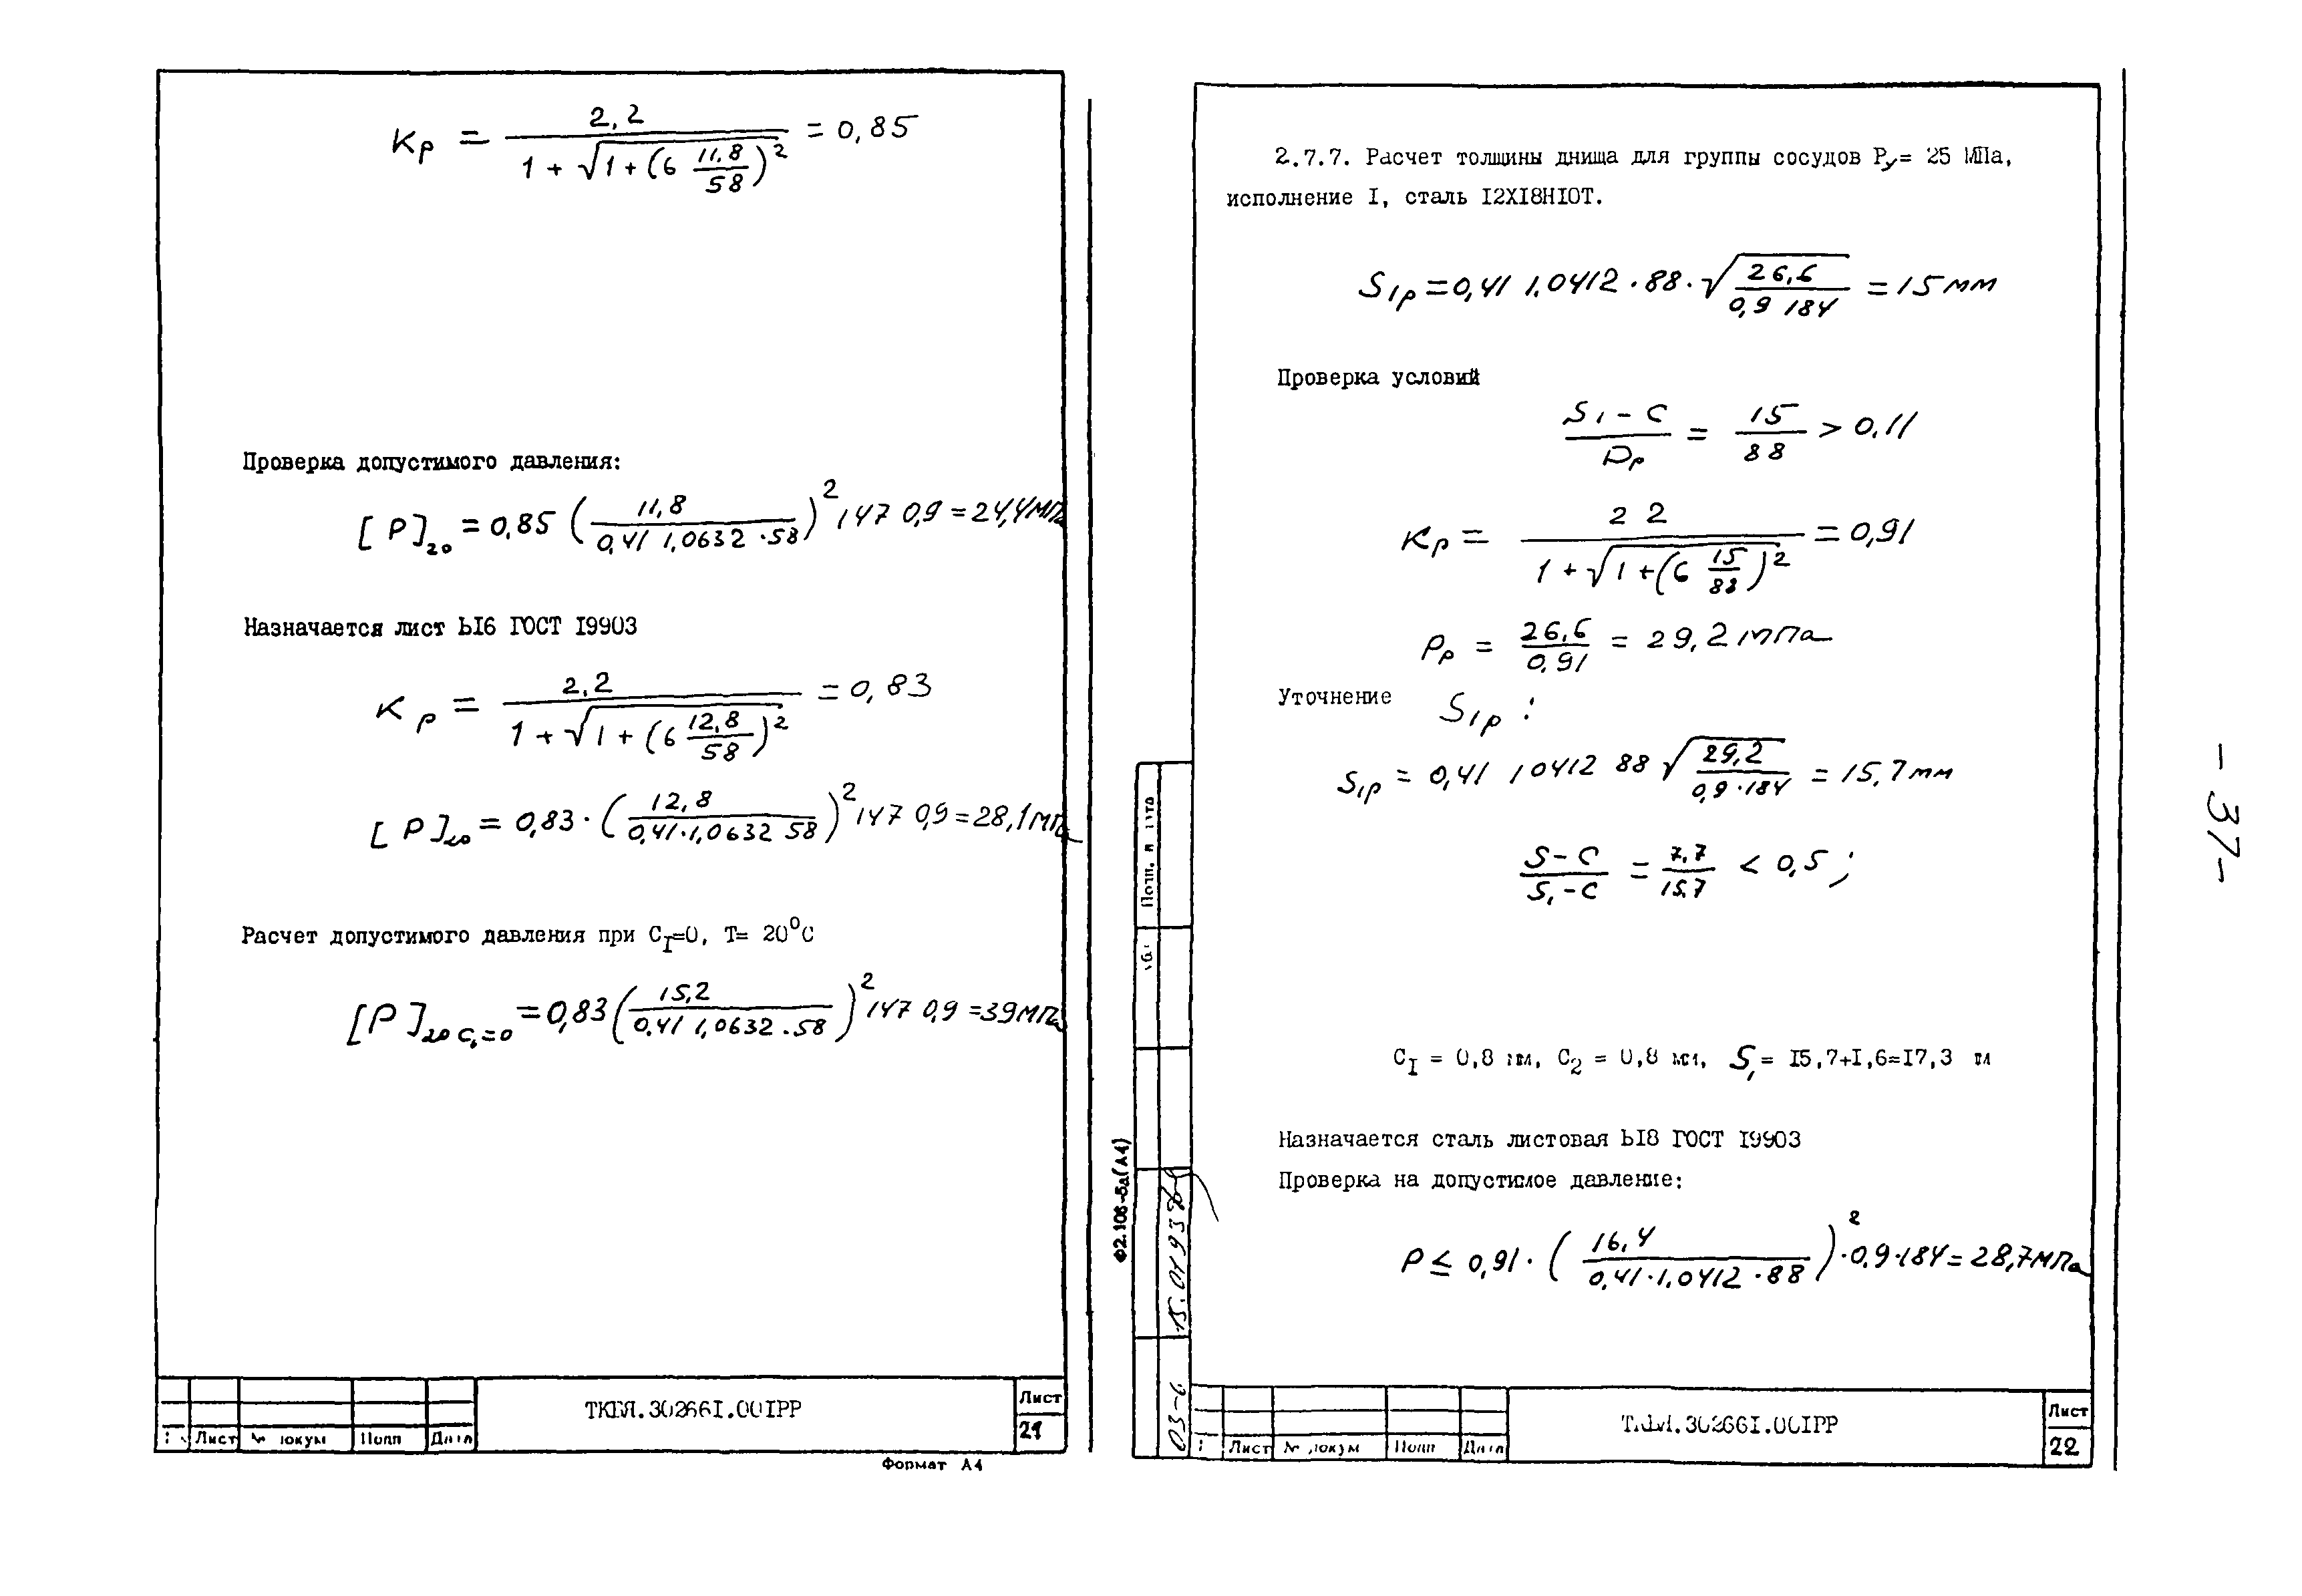 Kр = 2,2 / (1 + √(1 + (6 11,8/58)²)) = 0,85
Проверка допустимого давления:
[P]₂₀ = 0,85 (11,8 / (0,41 1,0632 · 58))² 147 0,9 = 24,4 МПа
Назначается лист Ы6 ГОСТ I9903
Kр = 2,2 / (1 + √(1 + (6 12,8/58)²)) = 0,83
[P]₂₀ = 0,83 · (12,8 / (0,41 · 1,0632 58))² 147 0,9 = 28,1 МПа
Расчет допустимого давления при CI=0, T= 20°C
[P]₂₀ C₁=0 = 0,83 (15,2 / (0,41 1,0632 · 58))² 147 0,9 = 39 МПа
Лист № докум Подп Дата
ТКБЯ.302661.001РР
Лист
21
Формат А4
2.7.7. Расчет толщины днища для группы сосудов Pу= 25 МПа,
исполнение I, сталь I2XI8HI0T.
S₁р = 0,41 1,0412 · 88 · √(26,6 / (0,9 184)) = 15 мм
Проверка условий
(S₁ - C) / Dр = 15/88 > 0,11
Kр = 2 2 / (1 + √(1 + (6 15/88)²)) = 0,91
Pр = 26,6 / 0,91 = 29,2 МПа
Уточнение S₁р :
S₁р = 0,41 1 0412 88 √(29,2 / (0,9 · 184)) = 15,7 мм
(S - C) / (S₁ - C) = 7,7 / 15,7 < 0,5 ;
CI = 0,8 мм, C2 = 0,8 мм, S₁ = I5,7+I,6=I7,3 м
Назначается сталь листовая ЫI8 ГОСТ I9903
Проверка на допустимое давление:
P ≤ 0,91 · (16,4 / (0,41 · 1,0412 · 88))² · 0,9 · 184 = 28,7 МПа
Подп. и дата
Ф2.106-5а(А4)
15.01.93
03-
Лист № докум Подп Дата
.302661.001РР
Лист
22
- 37 -